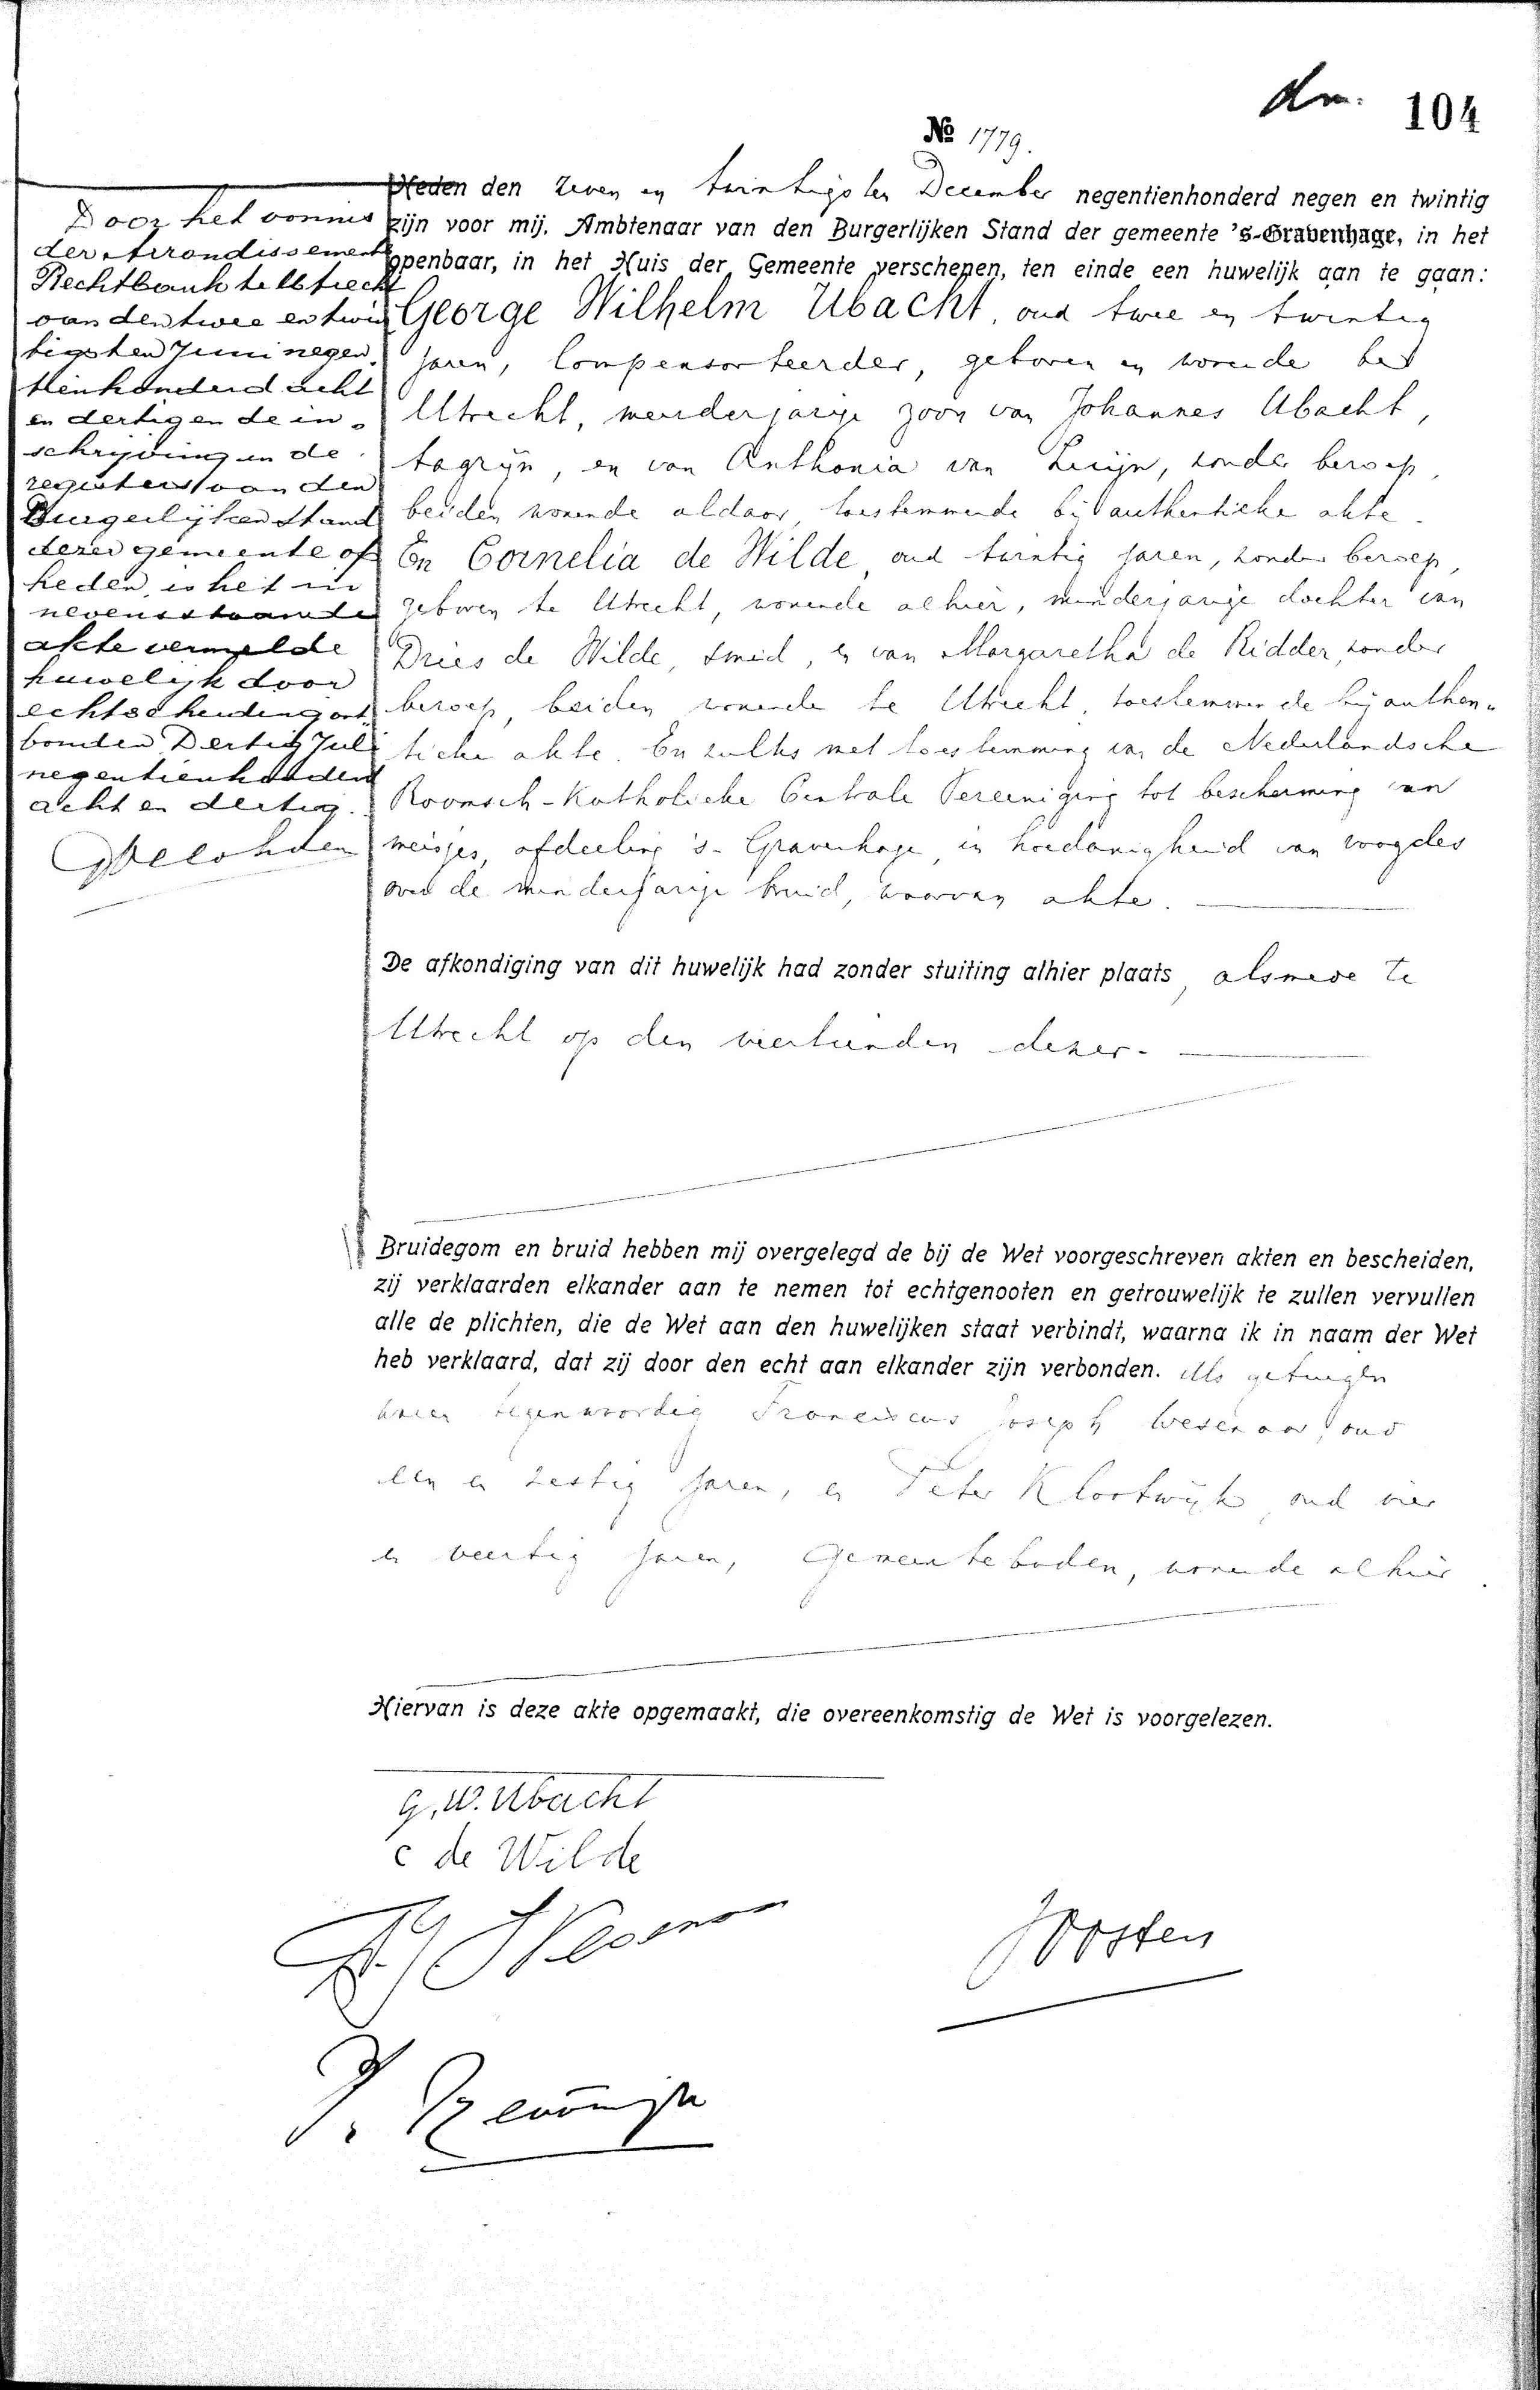 dm. 104
№ 1779.
Heden den zeven en twintigsten December negentienhonderd negen en twintig
zijn voor mij, Ambtenaar van den Burgerlijken Stand der gemeente 's-Gravenhage, in het
openbaar, in het Huis der Gemeente verschenen, ten einde een huwelijk aan te gaan:
George Wilhelm Ubacht, oud twee en twintig
jaren, lompensorteerder, geboren en wonende te
Utrecht, meerderjarige zoon van Johannes Ubacht,
tagrijn, en van Anthonia van Luijn, zonder beroep,
beiden wonende aldaar, toestemmende bij authentieke akte.
En Cornelia de Wilde, oud twintig jaren, zonder beroep,
geboren te Utrecht, wonende alhier, minderjarige dochter van
Dries de Wilde, smid, en van Margaretha de Ridder, zonder
beroep, beiden wonende te Utrecht, toestemmende bij authen-
tieke akte. En zulks met toestemming van de Nederlandsche
Roomsch-Katholieke Centrale Vereeniging tot bescherming van
meisjes, afdeeling 's-Gravenhage, in hoedanigheid van voogdes
over de minderjarige bruid, waarvan akte.
Door het vonnis
der Arrondissements
Rechtbank te Utrecht
van den twee en twin
tigsten Juni negen
tienhonderd acht
en dertig en de in-
schrijving in de
registers van den
Burgerlijken Stand
dezer gemeente op
heden, is het in
nevenstaande
akte vermelde
huwelijk door
echtscheiding ont-
bonden. Dertig Juli
negentienhonderd
acht en dertig.
De afkondiging van dit huwelijk had zonder stuiting alhier plaats, alsmede te
Utrecht op den veertienden dezer.
Bruidegom en bruid hebben mij overgelegd de bij de Wet voorgeschreven akten en bescheiden,
zij verklaarden elkander aan te nemen tot echtgenooten en getrouwelijk te zullen vervullen
alle de plichten, die de Wet aan den huwelijken staat verbindt, waarna ik in naam der Wet
heb verklaard, dat zij door den echt aan elkander zijn verbonden. Als getuigen
waren tegenwoordig Franciscus Joseph Wesenaar, oud
een en zestig jaren, en Peter Klootwijk, oud vier
en veertig jaren, Gemeenteboden, wonende alhier.
Hiervan is deze akte opgemaakt, die overeenkomstig de Wet is voorgelezen.
G. W. Ubacht
C de Wilde
Joosten